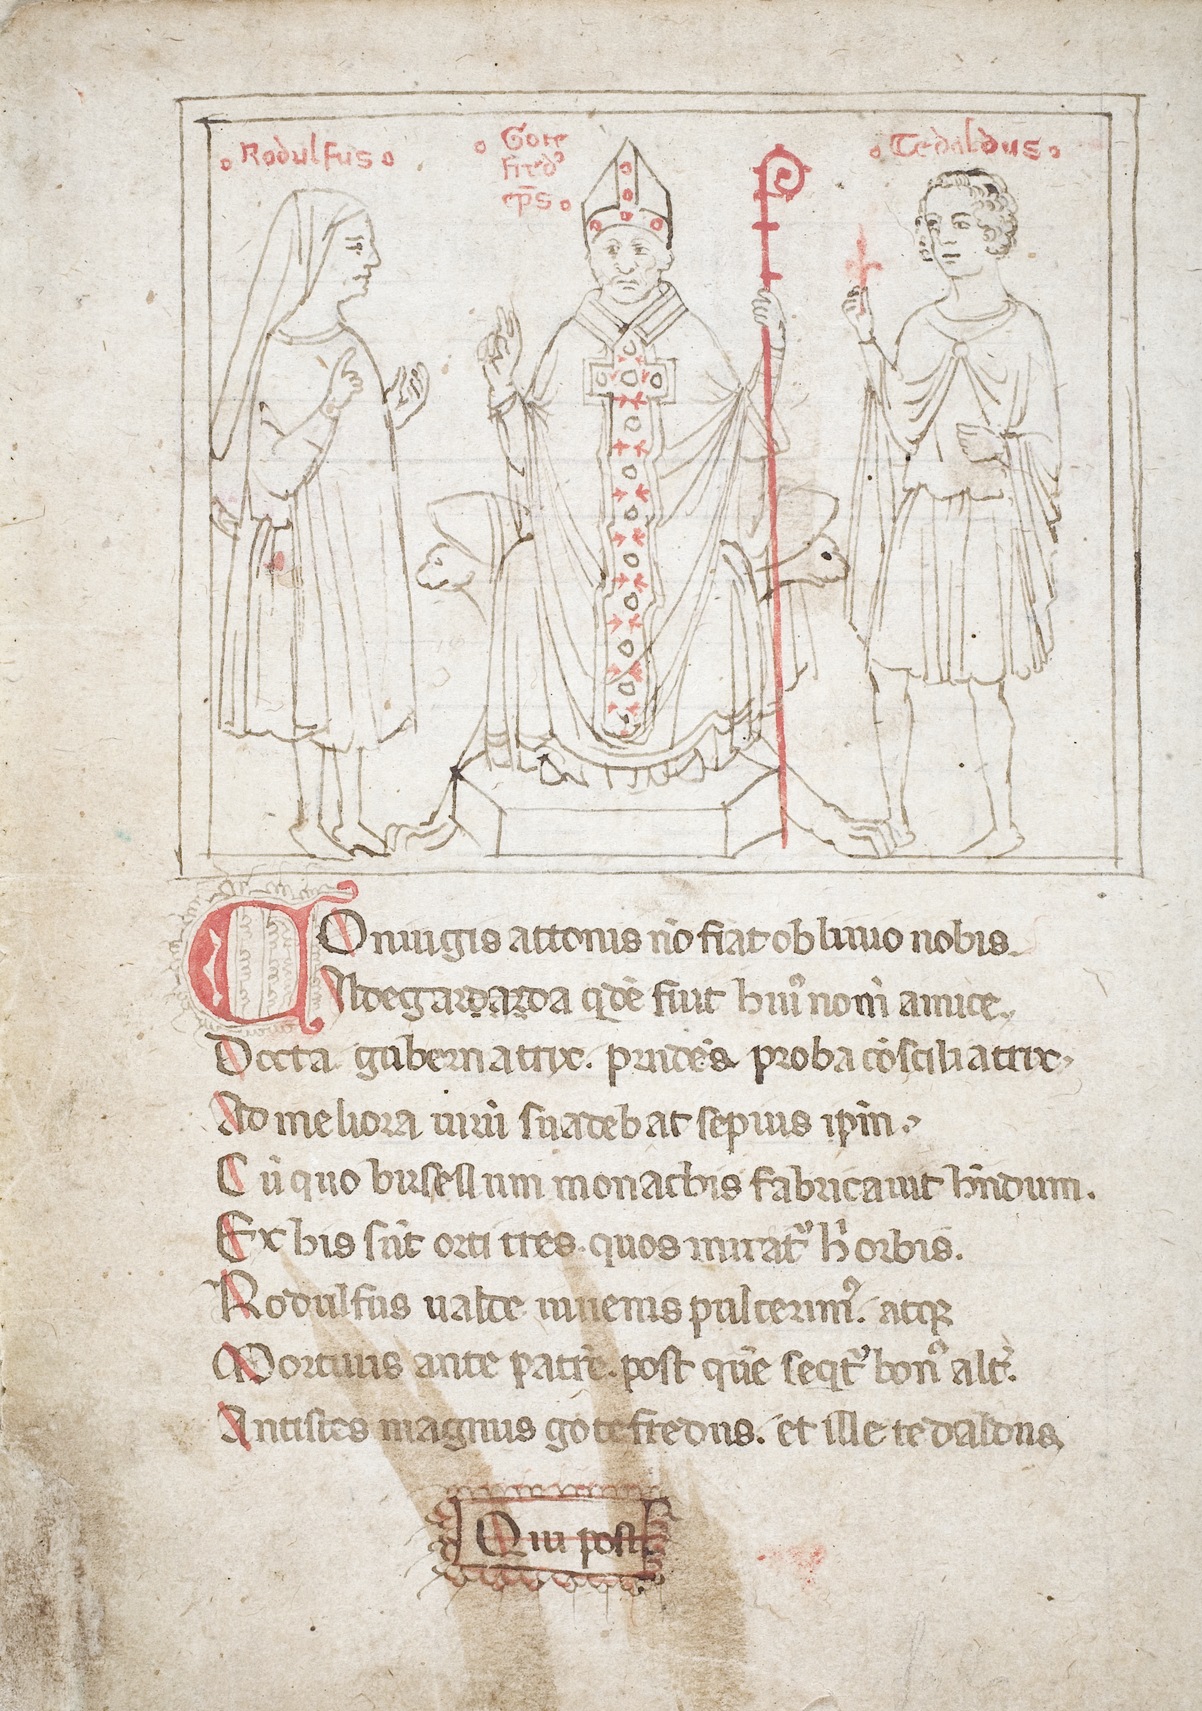 Rodulfus
Gote
fred⁹
ep̄s
Tedaldus
COniugis attonis nō fiat obliuio nobis.
Ildegardarda q̄dē fiut hui⁹ noīn amice.
Docta gubernatrix. prudēs proba cōsciliatrix
Ad meliora uirū suadebat sepius ip̄m
Cū quo burssellum monachis fabricauit hn̄dum.
Ex his sūt orti tres. quos mirat᷑ hͥ orbis.
Rodulfus ualde iuuenis pulcerim⁹. atqꝫ
Mortuus ante patrē. post quē seqt᷑ bon⁹ alt᷑.
Antistes magnus gotefredus. et ille tedaldus
Qui post